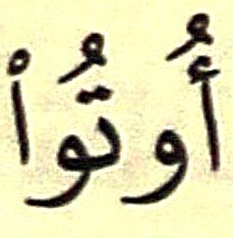 أُوتُواْ